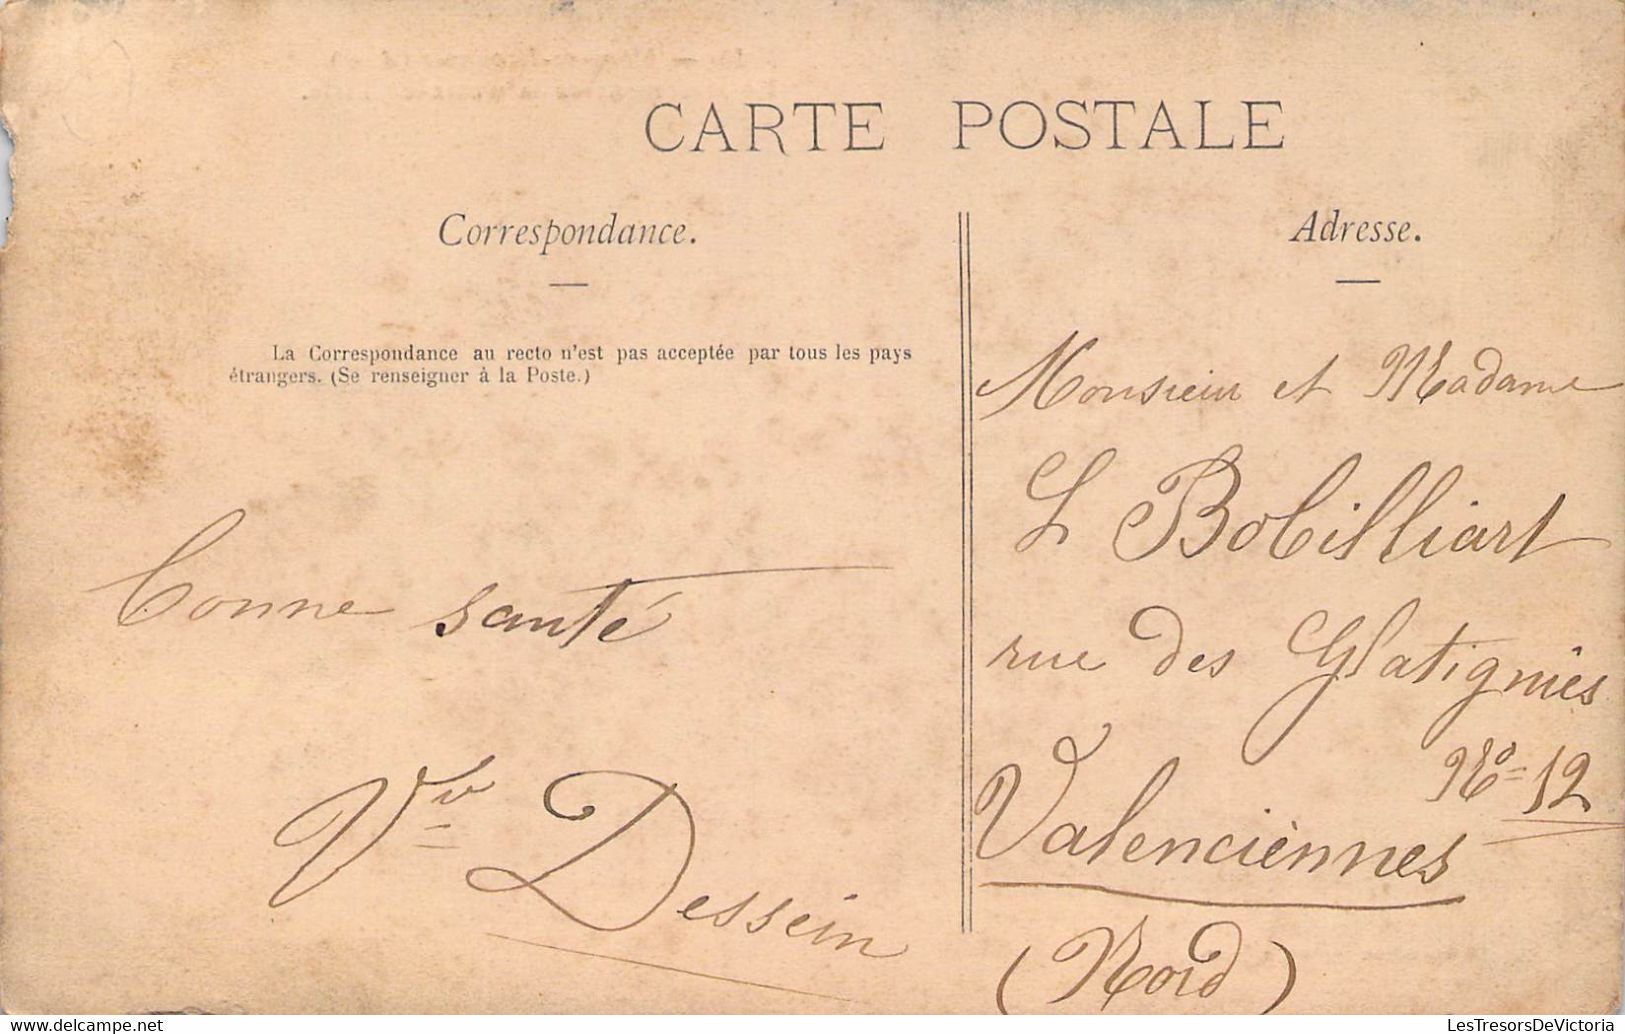 CARTE POSTALE
Correspondance.
La Correspondance au recto n'est pas acceptée par tous les pays
étrangers. (Se renseigner à la Poste.)
bonne santé
Vve Dessein
Adresse.
Monsieur et Madame
L Bobilliart
rue des Glatignies
No 12
Valenciènnes
(Nord)
LesTresorsDeVictoria
https://www.delcampe.net